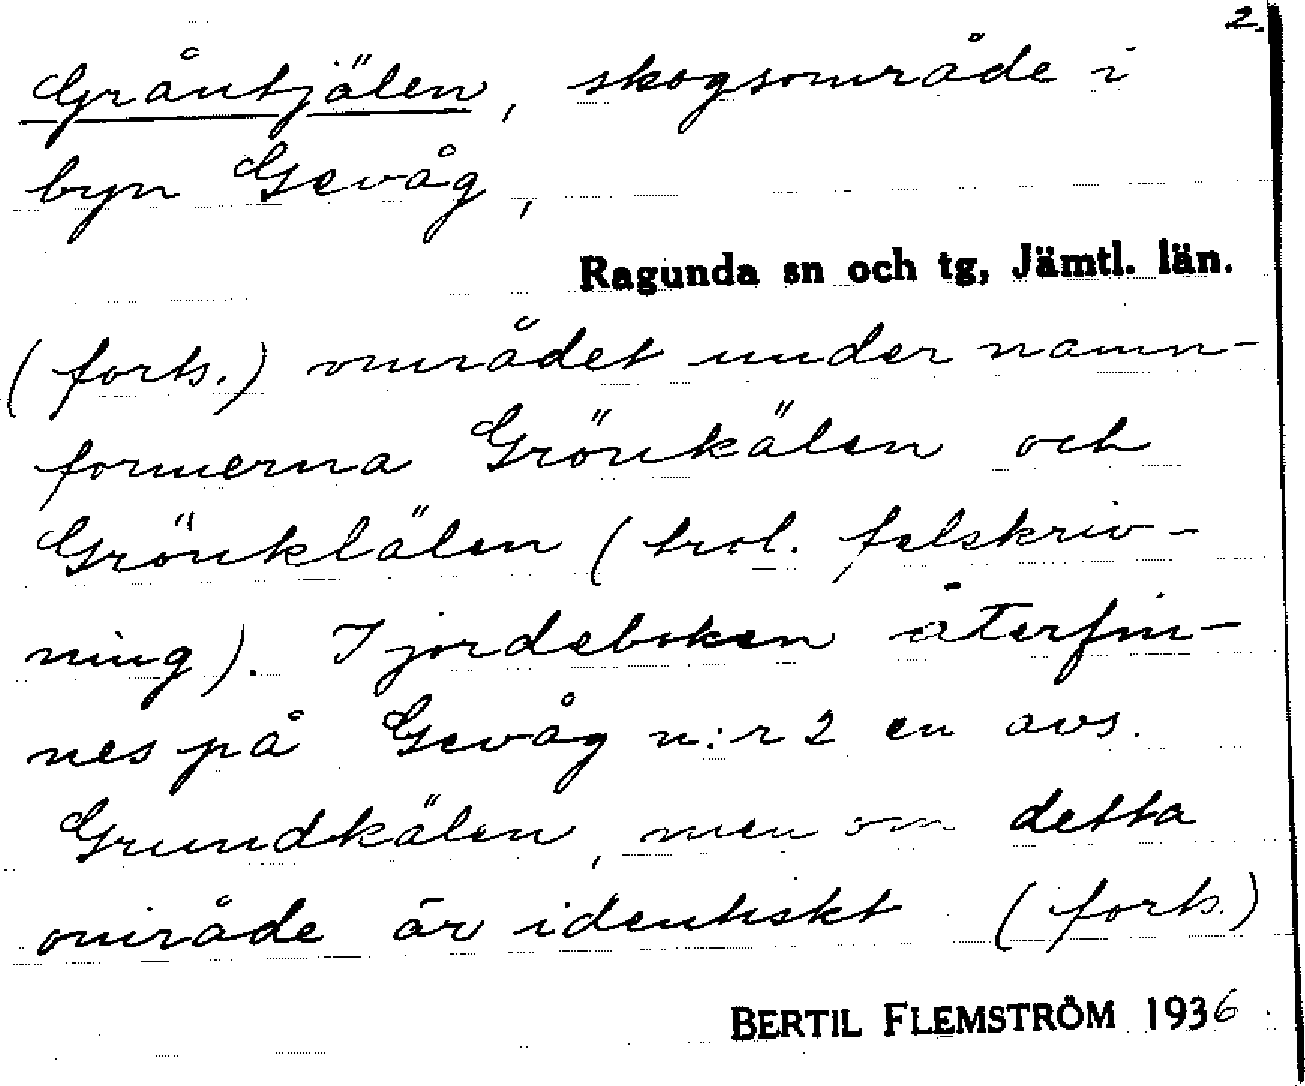 2.
Gråntjälen, skogsområde i
byn Gevåg,
Ragunda sn och tg, Jämtl. län.
(forts.) området under namn-
formerna Grönkälen och
Grönklälen (trol. felskriv-
ning). I jordeboken återfin-
nes på Gevåg n:r 2 en avs.
Grundkälen, men om detta
område är identiskt (forts.)
BERTIL FLEMSTRÖM 1936